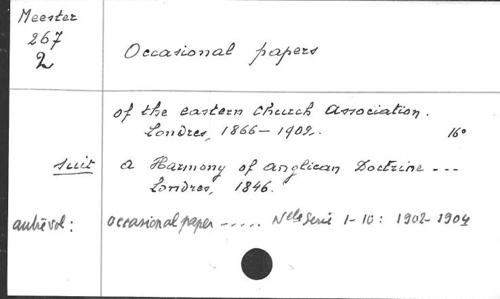 Meester
267
2
Occasional papers
of the eastern church association.
Londres, 1866-1902.
16°
suit a Harmony of anglican Doctrine ---
Londres, 1846.
autre vol: occasional paper ..... Nlle Serie 1-10: 1902-1904